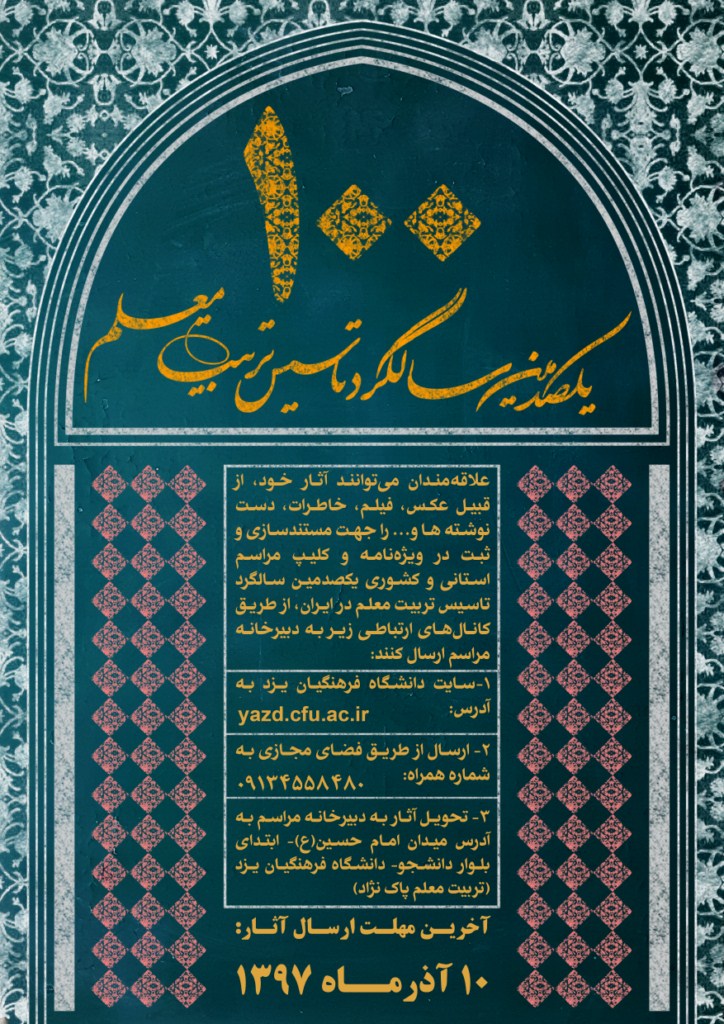 ۱۰۰
یکصدمین سالگرد تاسیس تربیت معلم
علاقه‌مندان می‌توانند آثار خود، از
قبیل عکس، فیلم، خاطرات، دست
نوشته ها و... را جهت مستندسازی و
ثبت در ویژه‌نامه و کلیپ مراسم
استانی و کشوری یکصدمین سالگرد
تاسیس تربیت معلم در ایران، از طریق
کانال‌های ارتباطی زیر به دبیرخانه
مراسم ارسال کنند:
۱-سایت دانشگاه فرهنگیان یزد به
آدرس: yazd.cfu.ac.ir
۲- ارسال از طریق فضای مجازی به
شماره همراه: ۰۹۱۳۴۵۵۸۴۸۰
۳- تحویل آثار به دبیرخانه مراسم به
آدرس میدان امام حسین(ع)- ابتدای
بلوار دانشجو- دانشگاه فرهنگیان یزد
(تربیت معلم پاک نژاد)
آخرین مهلت ارسال آثار:
۱۰ آذر ماه ۱۳۹۷